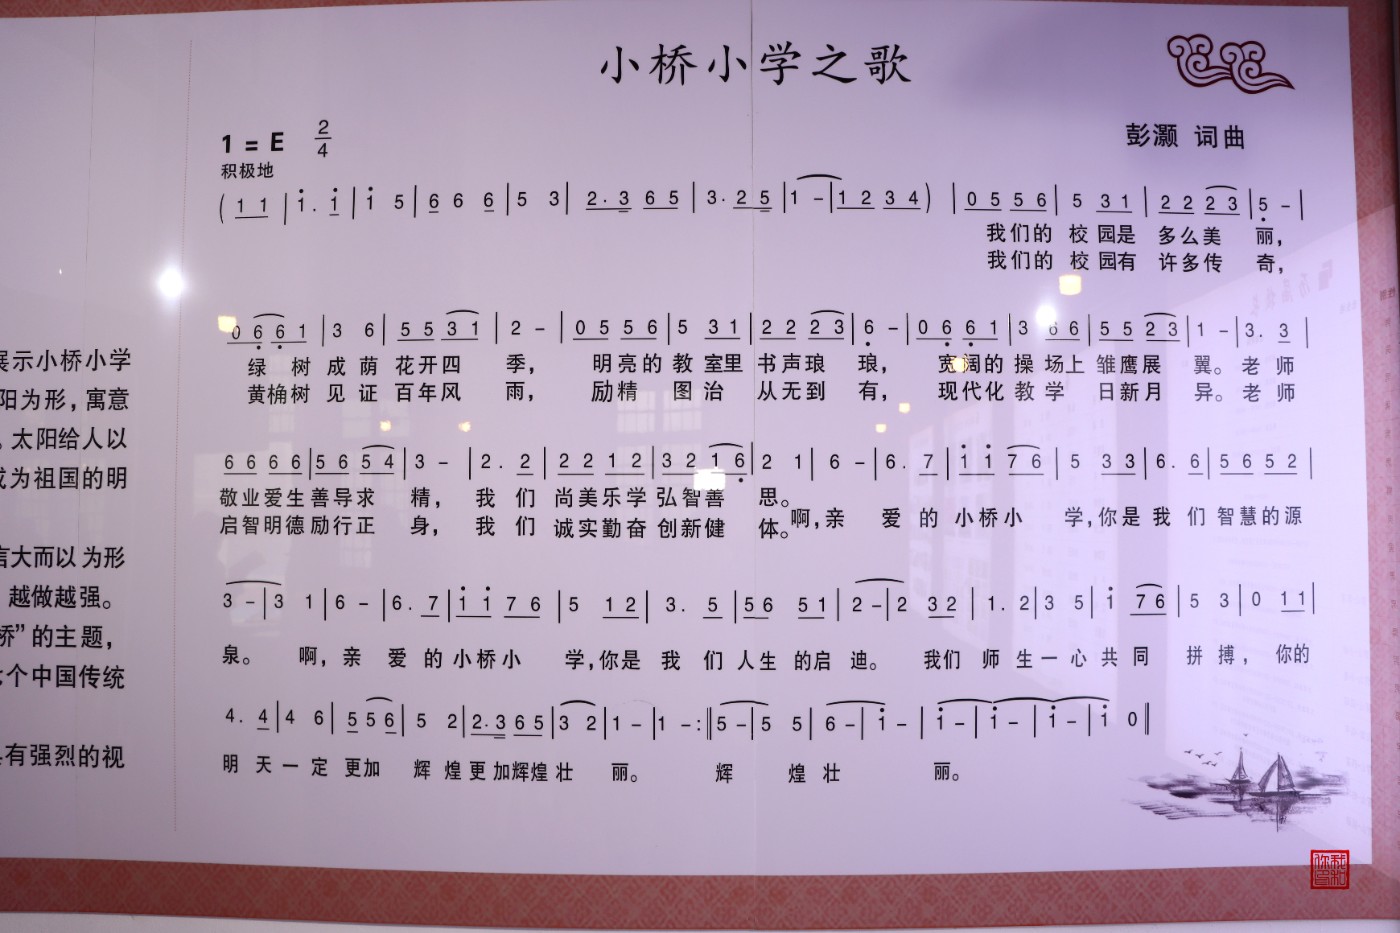 小桥小学之歌
1 = E 2/4
彭灏 词曲
积极地
( 1 1 | i . i | i 5 | 6 6 6 | 5 3 | 2 . 3 6 5 | 3 . 2 5 | 1 - | 1 2 3 4 ) | 0 5 5 6 | 5 3 1 | 2 2 2 3 | 5 - |
我们的 校园是 多么美 丽，
我们的 校园有 许多传 奇，
0 6 6 1 | 3 6 | 5 5 3 1 | 2 - | 0 5 5 6 | 5 3 1 | 2 2 2 3 | 6 - | 0 6 6 1 | 3 6 6 | 5 5 2 3 | 1 - | 3 . 3 |
绿 树 成 荫 花开四 季， 明亮的 教 室里 书声琅 琅， 宽阔的 操 场上 雏鹰展 翼。老 师
黄桷树 见 证 百年风 雨， 励精 图 治 从无到 有， 现代化 教 学 日新月 异。老 师
6 6 6 6 | 5 6 5 4 | 3 - | 2 . 2 | 2 2 1 2 | 3 2 1 6 | 2 1 | 6 - | 6 . 7 | i i 7 6 | 5 3 3 | 6 . 6 | 5 6 5 2 |
敬业爱生善导求 精， 我 们 尚美乐学 弘智善 思。
启智明德励行正 身， 我 们 诚实勤奋 创新健 体。啊，亲 爱 的 小桥小 学，你是 我 们 智慧的源
3 - | 3 1 | 6 - | 6 . 7 | i i 7 6 | 5 1 2 | 3 . 5 | 5 6 5 1 | 2 - | 2 3 2 | 1 . 2 | 3 5 | i 7 6 | 5 3 | 0 1 1 |
泉。 啊，亲 爱 的 小桥小 学，你是 我 们 人生 的启 迪。 我们 师 生一 心共 同 拼 搏， 你的
4 . 4 | 4 6 | 5 5 6 | 5 2 | 2 . 3 6 5 | 3 2 | 1 - | 1 - :‖ 5 - | 5 5 | 6 - | i - | i - | i - | i - | i 0 ‖
明 天一 定 更加 辉 煌更加辉煌 壮 丽。 辉 煌 壮 丽。
展示小桥小学
阳为形，寓意
。太阳给人以
成为祖国的明
言大而以为形
越做越强。
桥”的主题，
个中国传统
具有强烈的视